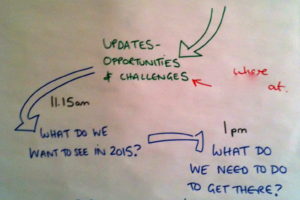 UPDATES-
OPPORTUNITIES
& CHALLENGES
where
at.
11.15am
WHAT DO WE
WANT TO SEE IN 2015?
1pm
WHAT DO
WE NEED TO DO
TO GET THERE?